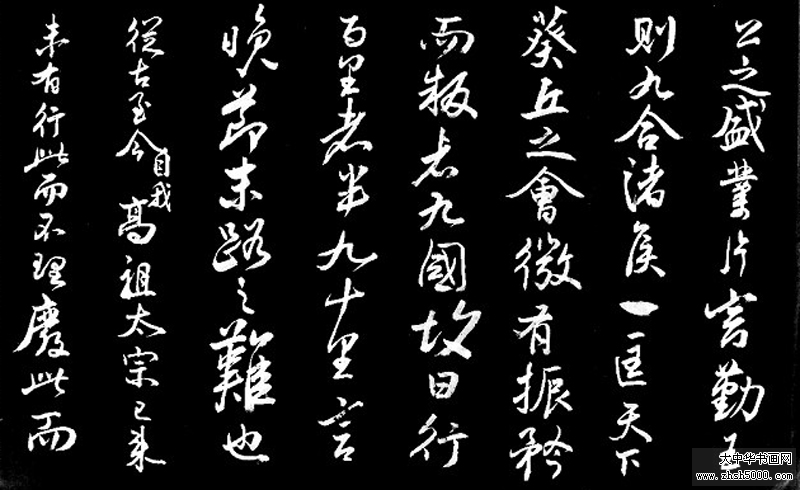 公之盛業片言勤王
則九合諸侯一匡天下
葵丘之會微有振矜
而叛者九國故曰行
百里者半九十里言
晚節末路之難也
從古至今自我高祖太宗已来
未有行此而不理廢此而
大中华书画网
www.zhsh5000.com